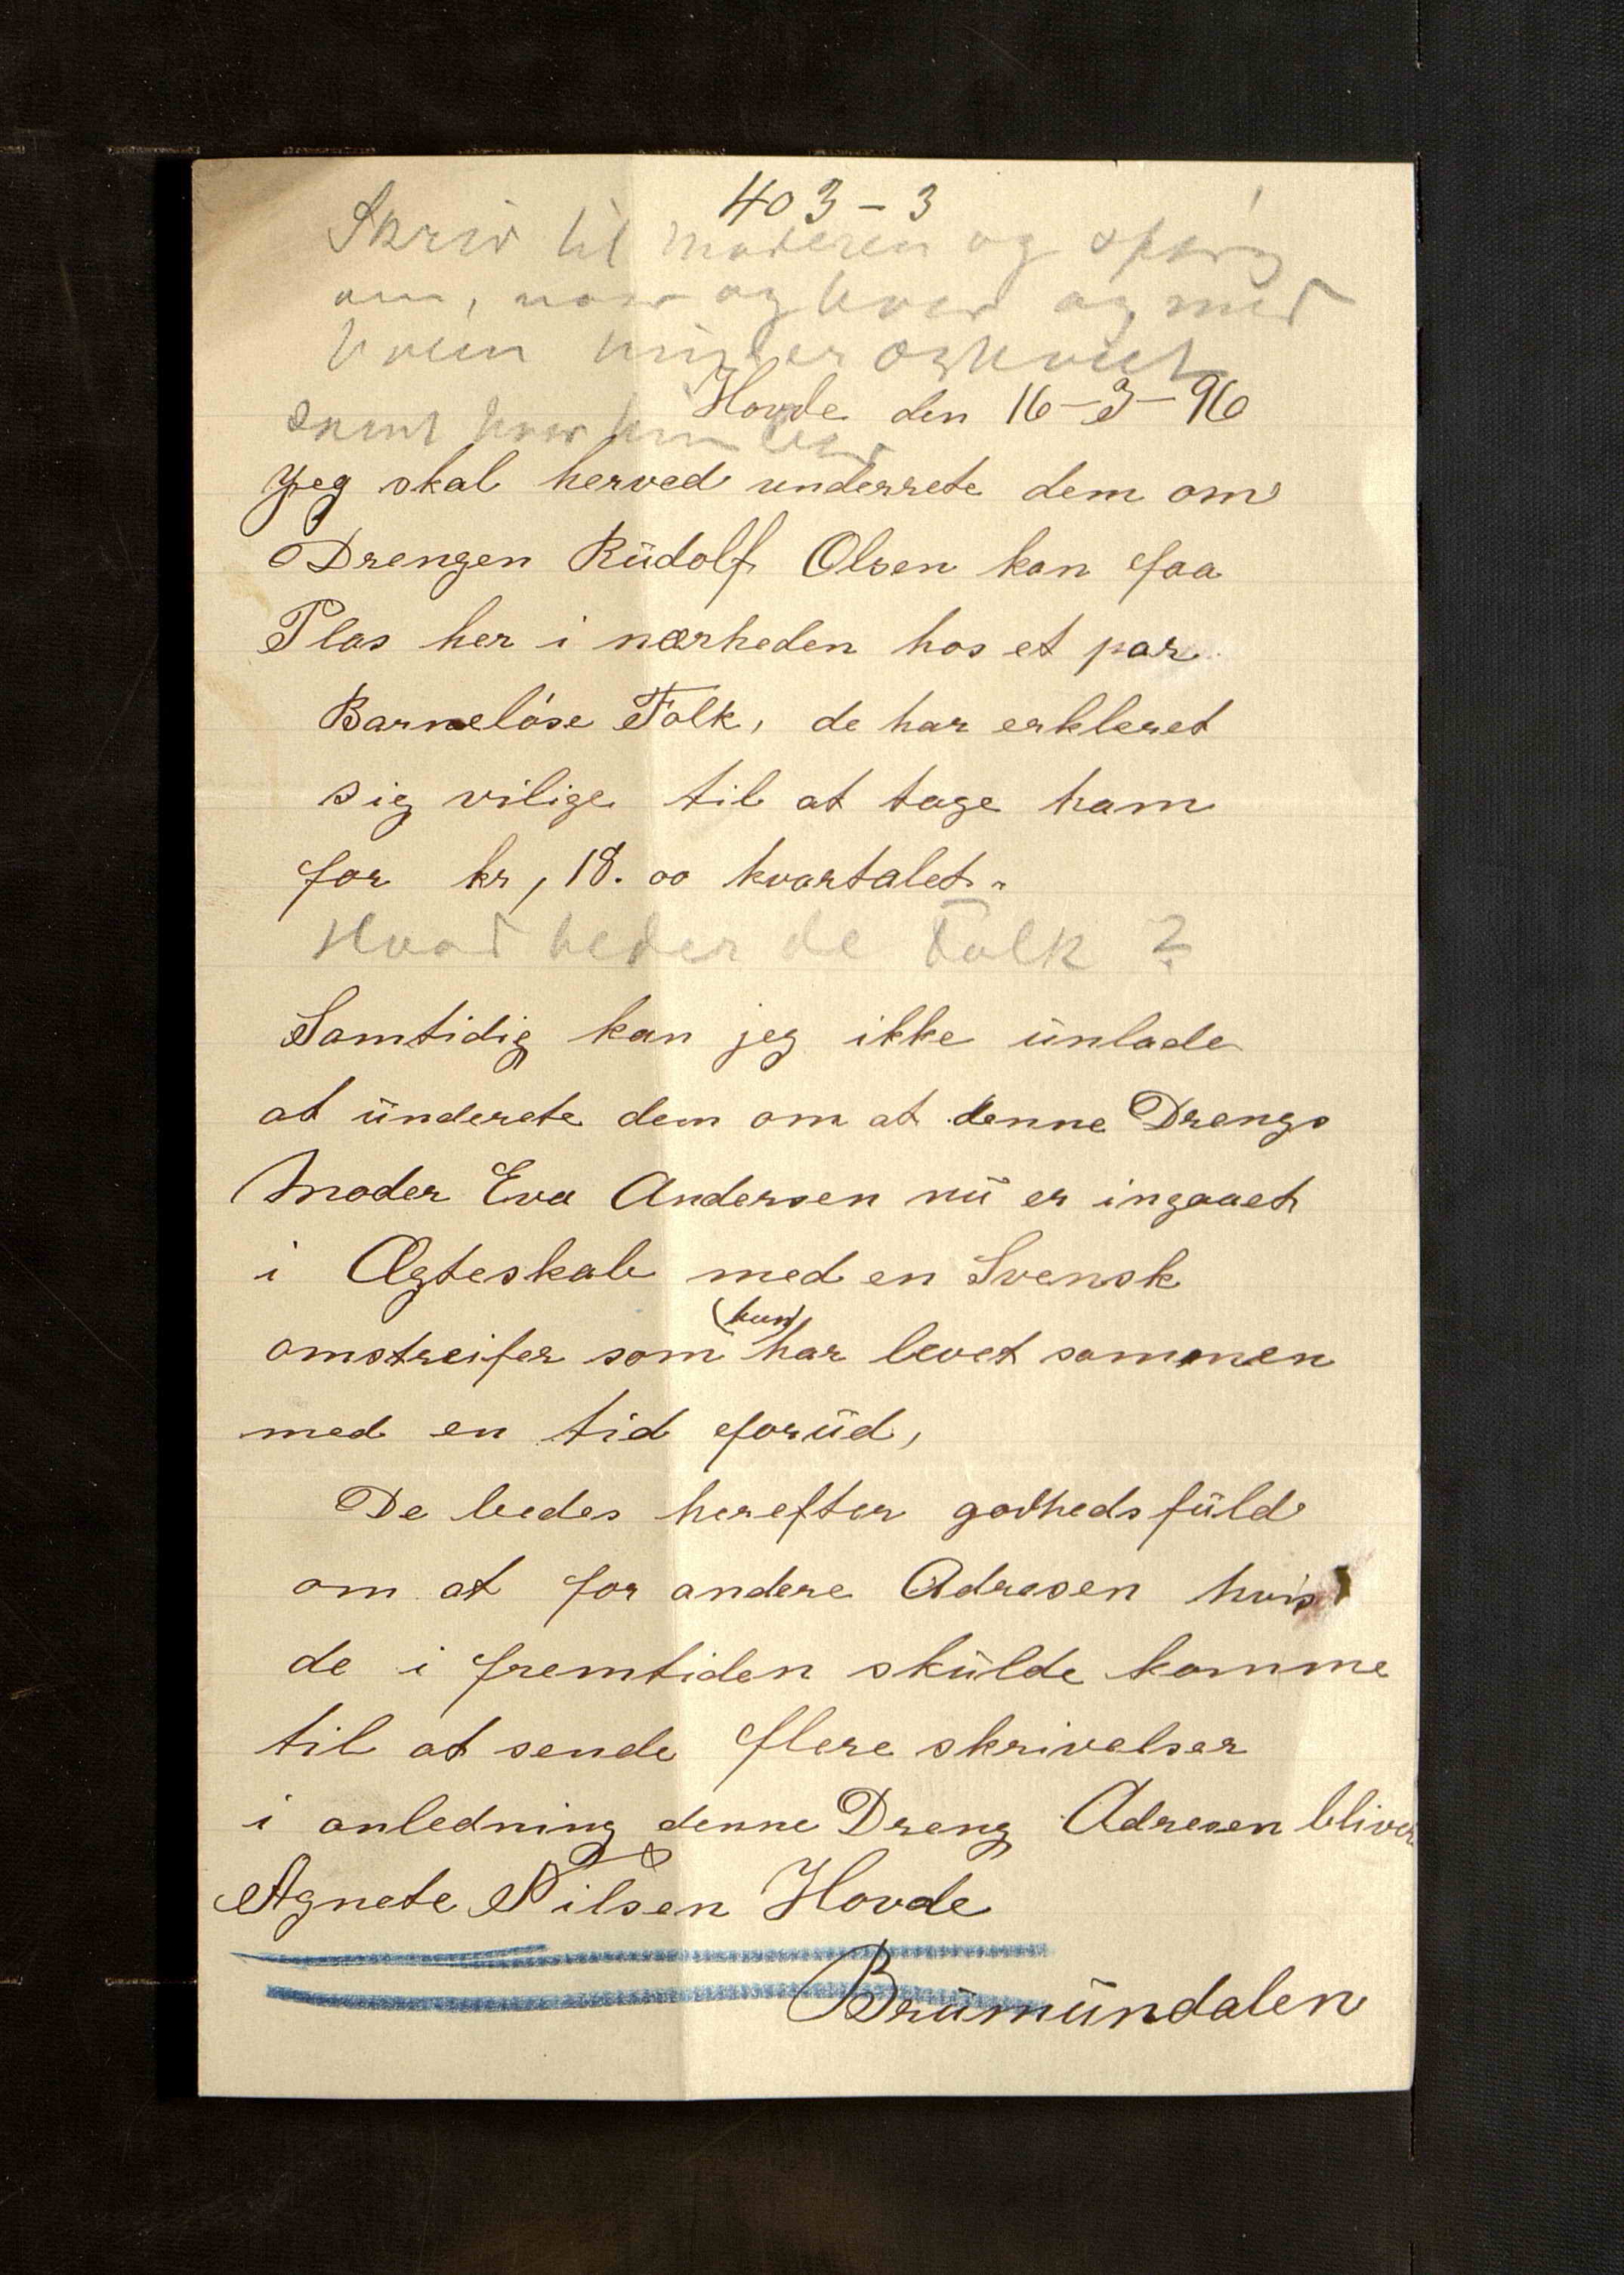 403-3
Skriv til moderen og spørg
om, naar og hvor og med
hvem hun er
Hovde den 16-3-96
samt hvor hun
Jeg skal herved underrete dem om
Drengen Rüdolf Olsen kan faa
Plas her i nærheden hos et par
Barneløse Folk, de har erkleret
sig vilige til at tage ham
for kr, 18.00 kvartalet.
Hvad heder de Folk?
Samtidig kan jeg ikke ünlade
at ünderete dem om at denne Drengs
Moder Eva Andersen nü er ingaaet
i Ægteskab med en Svensk
(hun)
omstreifer som har levet sammen
med en tid forüd,
De bedes herefter godhedsfüld
om at for andere Adresen hvis
de i fremtiden skülde komme
til at sende flere skrivelser
i anledning denne Dreng Adresen bliver
Agnete Nilsen Hovde
Brümündalen